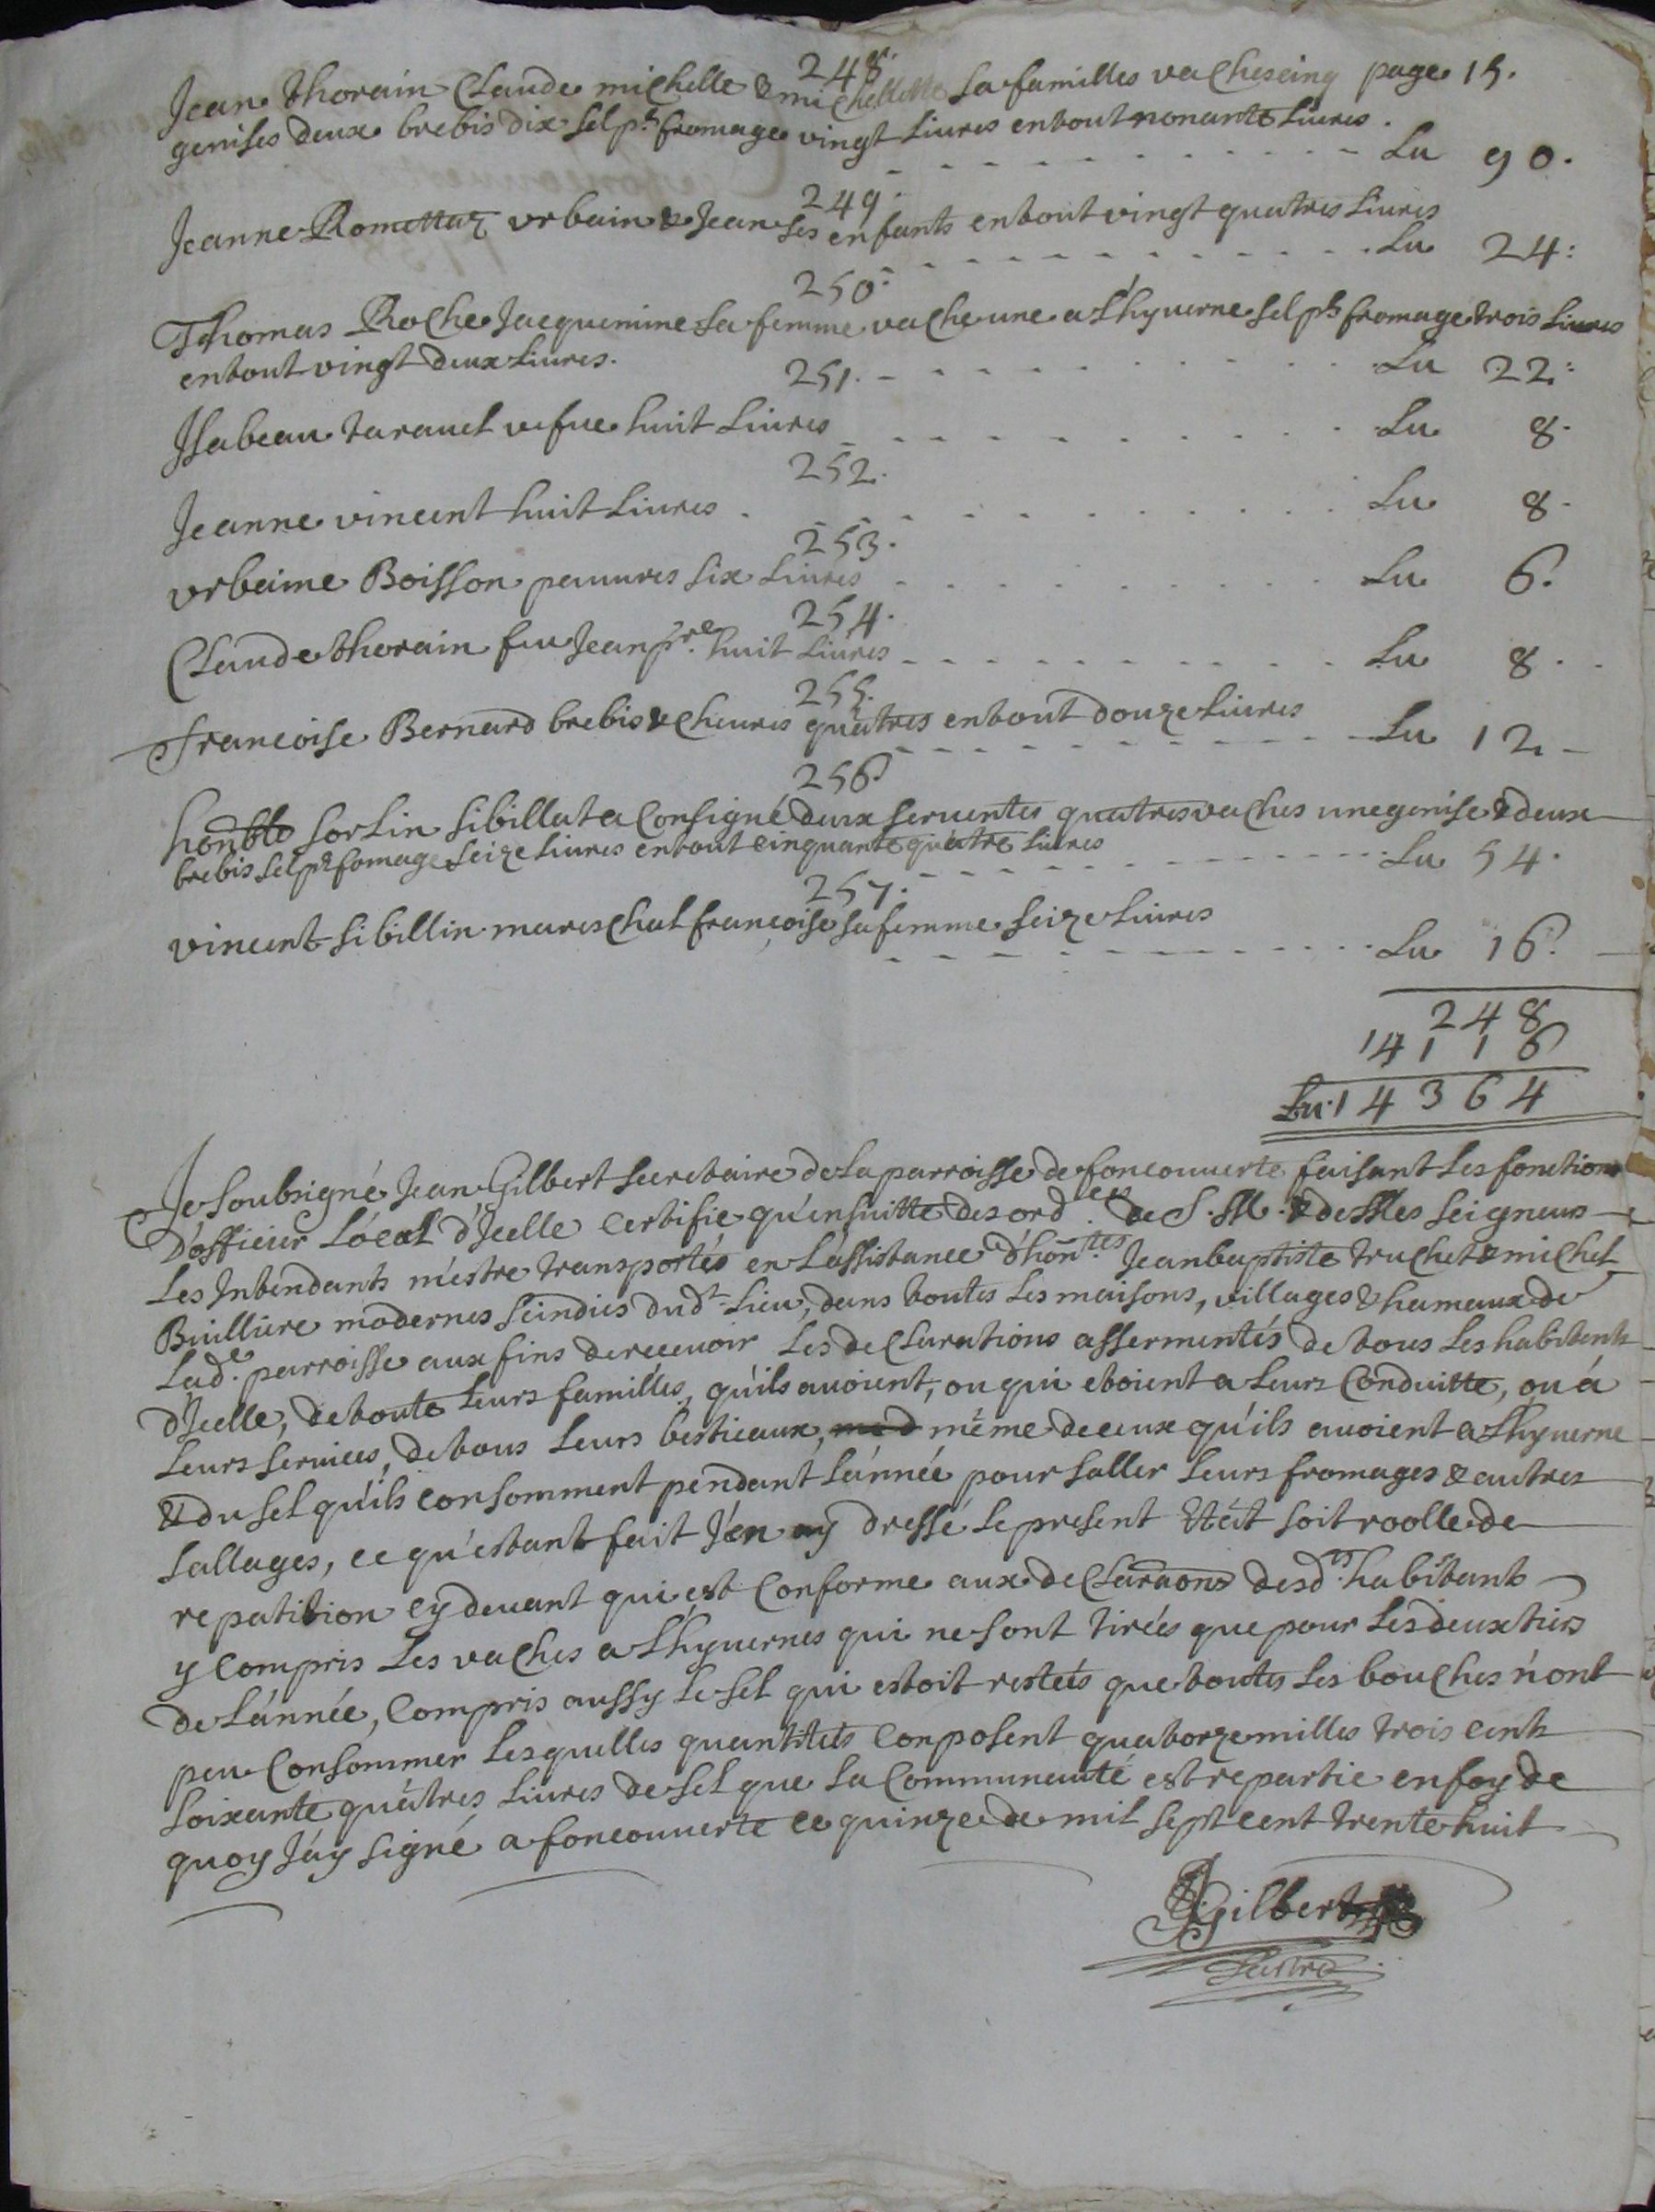 248.
Jean thorain Claude michelle & michellette sa familles vaches cinq page 15.
genises deux brebis dix sel pr fromage vingt Liures entout nonante Liures. Lu 90.
249.
Jeanne Romettaz vrbain & Jean ses enfants entout vingt quatres Liures
Lu 24:
250.
Thomas Roche Jacquemine sa femme vache une a Lhyuerne sel pr fromage trois Liures
entout vingt deux Liures. Lu 22:
251.
Jsabeau tarauel vefue huit Liures Lu 8.
252.
Jeanne vincent huit Liures Lu 8.
253.
vrbaine Boisson pauures six Liures Lu 6.
254.
Claude thorain feu Jean pre huit Liures Lu 8.
255.
francoise Bernard brebis & cheures quatres entout douze Liures Lu 12
256
honble sorlin sibillat a Consigné deux seruentes quatres vaches une genise & deux
brebis sel pr fomage seize Liures entout cinquante quatre Liures Lu 54.
257.
vincent sibillin mareschal francoise sa femme seize Liures
Lu 16.
248
14116
Lu. 14364
Je soubsigné Jean Gilbert secretaire de La parroisse de foncouuerte faisant Les fonctions
D'officier Local d'Jcelle Certifie qu'ensuitte des ord.es de S. M. & desMes seigneurs
Les Jntendants m'estre transportés en L'assistance d'hon.tes Jean baptiste truchet & michel
Buillière modernes scindics dudt. Lieu, dans toutes Les maisons, villages & hameaux de
Lad.e parroisse aux fins de receuoir Les declarations assermentés de tous Les habitants
d'Jcelle, de toute Leurs familles, qu'ils auoient, ou qui etoient a Leurs Conduitte, ou á
Leurs seruices, de tous Leurs bestieaux, même de ceux qu'ils auoient a Lhyuerne
& du sel qu'ils consomment pendant L'année pour saller Leurs fromages & autres
sallages, ce qu'estant fait J'en ay dressé Le present Etát soit roolle de
repatition cy deuant qui est Conforme aux declaraons desd.es habitants
y Compris Les vaches a Lhyuernes qui ne sont tirées que pour Les deux tiers
de L'année, Compris aussy Le sel qui estoit restés que toutes Les bouches n'ont
peu Consommer Lesquelles quantités Conposent quatorze milles trois cents
soixante quatres Liures de sel que La Communauté est repartie en foy de
quoy J'áy signé a foncouuerte ce quinze de mil sept cent trente huit
JGilbert